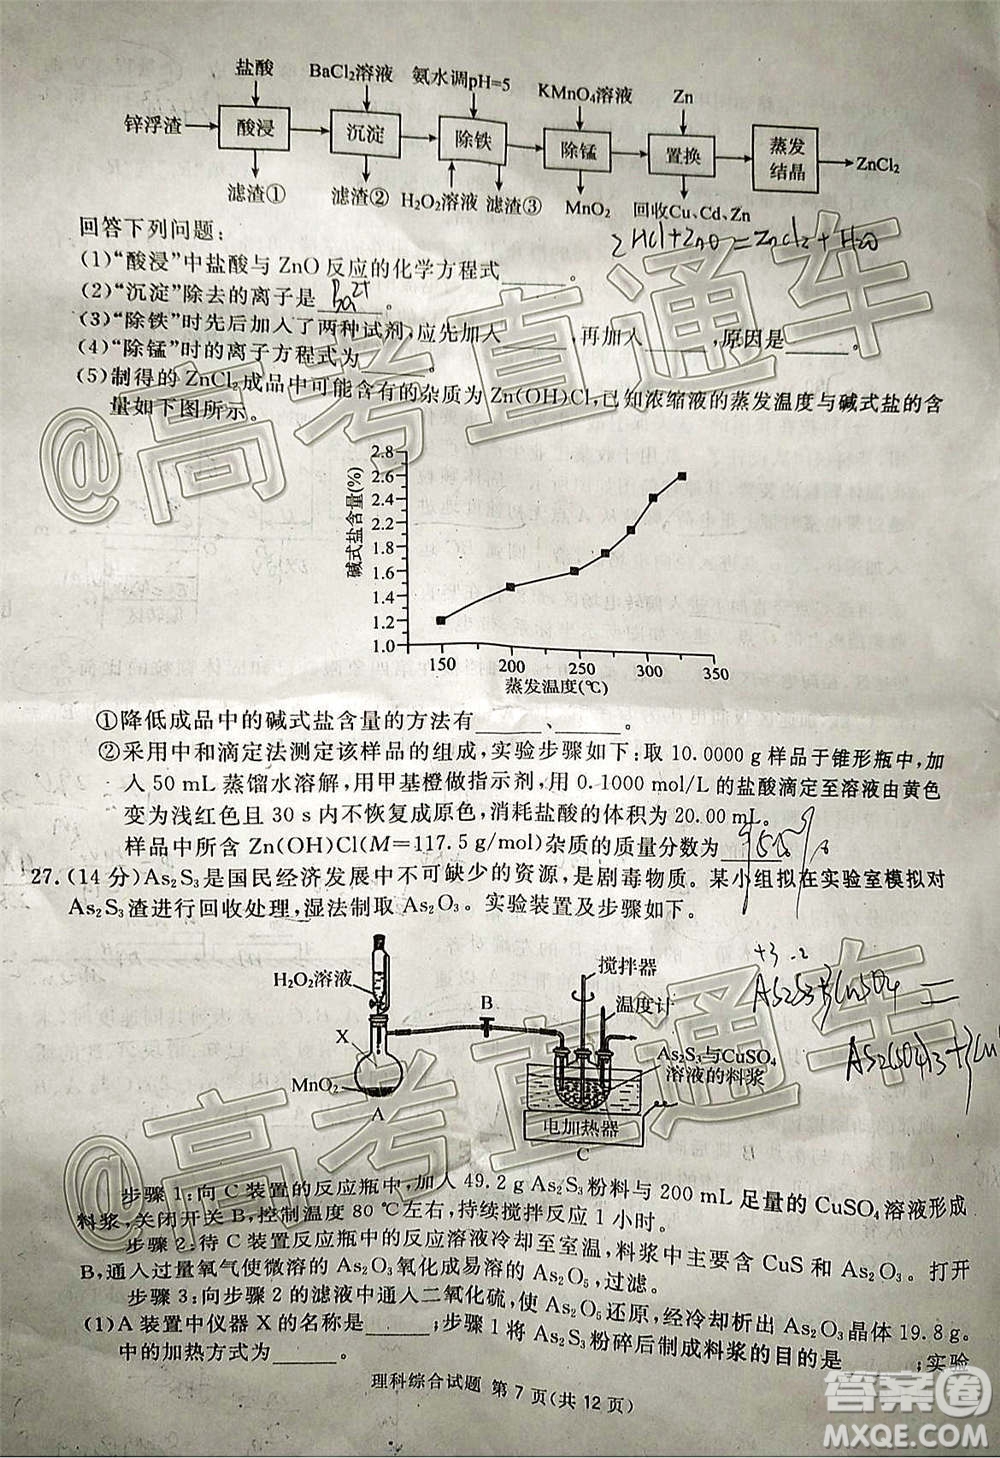 盐酸 BaCl₂溶液 氨水调pH=5 KMnO₄溶液 Zn
锌浮渣 酸浸 沉淀 除铁 除锰 置换 蒸发结晶 ZnCl₂
滤渣① 滤渣② H₂O₂溶液 滤渣③ MnO₂ 回收Cu、Cd、Zn
回答下列问题:
2HCl+ZnO=ZnCl₂+H₂O
(1)“酸浸”中盐酸与ZnO反应的化学方程式______。
(2)“沉淀”除去的离子是 Ba²⁺ 。
(3)“除铁”时先后加入了两种试剂,应先加入______,再加入______,原因是______。
(4)“除锰”时的离子方程式为______。
(5)制得的ZnCl₂成品中可能含有的杂质为Zn(OH)Cl,已知浓缩液的蒸发温度与碱式盐的含
量如下图所示。
碱式盐含量(%)
2.8
2.6
2.4
2.2
2.0
1.8
1.6
1.4
1.2
1.0
150 200 250 300 350
蒸发温度(℃)
①降低成品中的碱式盐含量的方法有______、______。
②采用中和滴定法测定该样品的组成,实验步骤如下:取10.0000 g样品于锥形瓶中,加
入50 mL蒸馏水溶解,用甲基橙做指示剂,用0.1000 mol/L的盐酸滴定至溶液由黄色
变为浅红色且30 s内不恢复成原色,消耗盐酸的体积为20.00 mL。
样品中所含Zn(OH)Cl(M=117.5 g/mol)杂质的质量分数为______
27.(14分)As₂S₃是国民经济发展中不可缺少的资源,是剧毒物质。某小组拟在实验室模拟对
As₂S₃渣进行回收处理,湿法制取As₂O₃。实验装置及步骤如下。
H₂O₂溶液
X
MnO₂
A
B
搅拌器
温度计
As₂S₃与CuSO₄
溶液的料浆
电加热器
C
+3 -2
As₂S₃+3CuSO₄=
As₂(SO₄)₃+3Cu
步骤1:向C装置的反应瓶中,加入49.2 g As₂S₃粉料与200 mL足量的CuSO₄溶液形成
料浆,关闭开关B,控制温度80 ℃左右,持续搅拌反应1小时。
步骤2:待C装置反应瓶中的反应溶液冷却至室温,料浆中主要含CuS和As₂O₃。打开
B,通入过量氧气使微溶的As₂O₃氧化成易溶的As₂O₅,过滤。
步骤3:向步骤2的滤液中通入二氧化硫,使As₂O₅还原,经冷却析出As₂O₃晶体19.8 g。
(1)A装置中仪器X的名称是______;步骤1将As₂S₃粉碎后制成料浆的目的是______;实验
中的加热方式为______。
理科综合试题 第7页(共12页)
@高考直通车
@高考直通车
答案圈
MXQE.COM